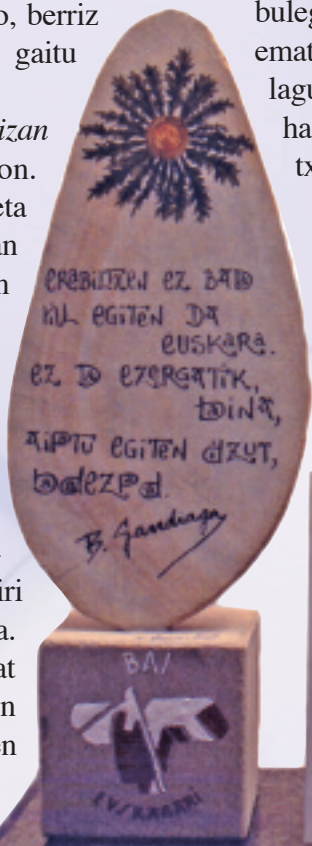 o, berriz
gaitu
izan
on.
eta
an
n
iri
a.
at
n
en
buleg
emat
lagu
ha
tx
ERABILTZEN EZ BADA
HIL EGITEN DA
EUSKARA.
EZ DA EZERGATIK,
BAINA,
AIPTU EGITEN DIZUT,
BADEZPADA.
B. Gandiaga
BAI
EUSKARARI